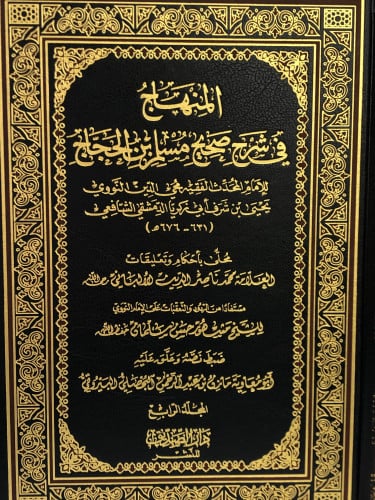 المنهاج
في شرح صحيح مسلم بن الحجاج
للإمام المحدث الفقيه محيي الدين النووي
يحيى بن شرف أبي زكريا الدمشقي الشافعي
(٦٣١ - ٦٧٦ هـ)
محلى بأحكام وتعليقات
العلامة محمد ناصر الدين الألباني رحمه الله
مستفادا من الردود والتعقبات على الإمام النووي
للشيخ مشهور حسن سلمان حفظه الله
ضبط نصه وعلق عليه
أبو معاوية مازن بن عبد الرحمن البحصلي البيروتي
المجلد الرابع
دار
للنشر